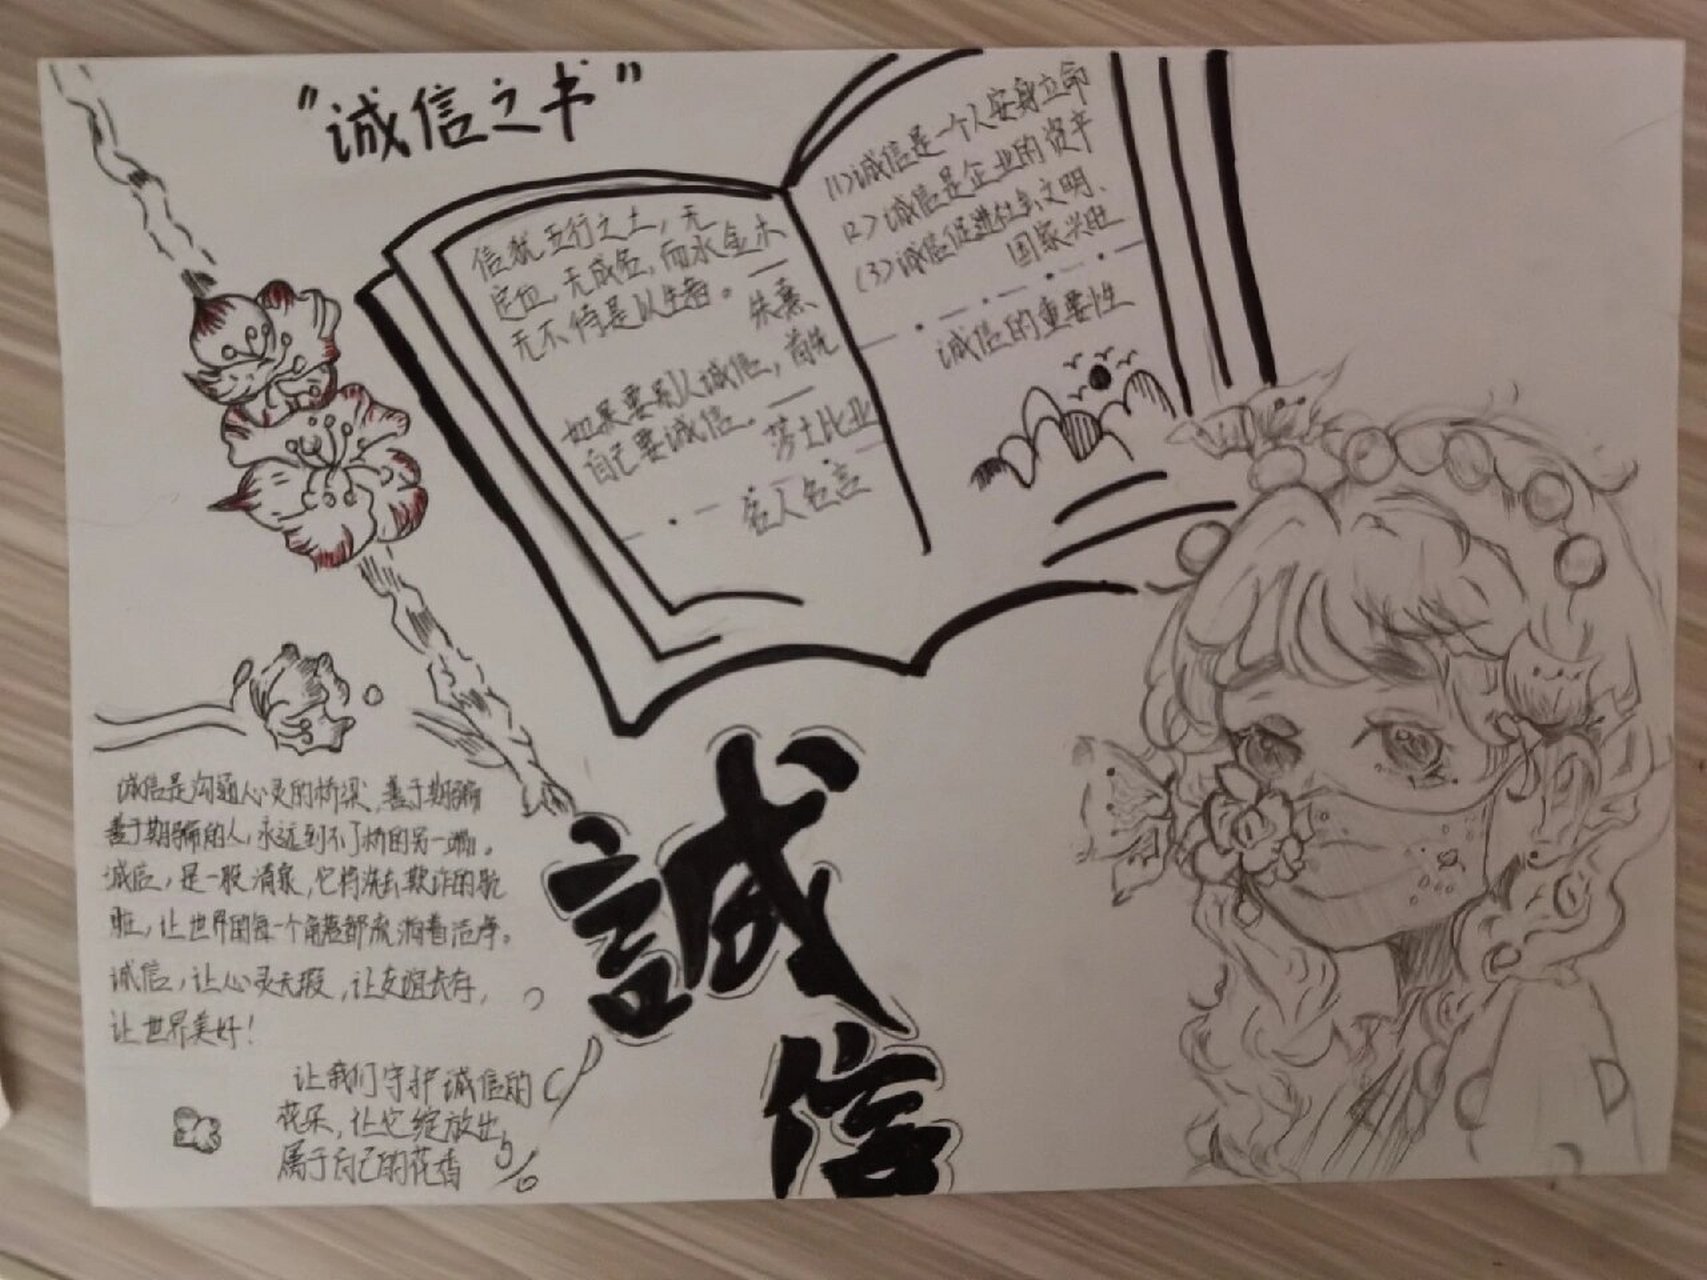 “诚信之书”
信犹五行之土，无
定位，无成名，而水金木
无不待是以生者。——朱熹
如果要别人诚信，首先
自己要诚信。——莎士比亚
名人名言
(1)诚信是一个人安身立命
(2)诚信是企业的资产
(3)诚信促进社会文明、
国家兴旺
诚信的重要性
誠
信
诚信是沟通心灵的桥梁，善于期骗
善于期骗的人，永远到不了桥的另一端。
诚信，是一股清泉，它将洗去欺诈的肮
脏，让世界的每一个角落都流淌着洁净。
诚信，让心灵无瑕，让友谊长存，
让世界美好！
让我们守护诚信的
花朵，让它绽放出
属于自己的花香